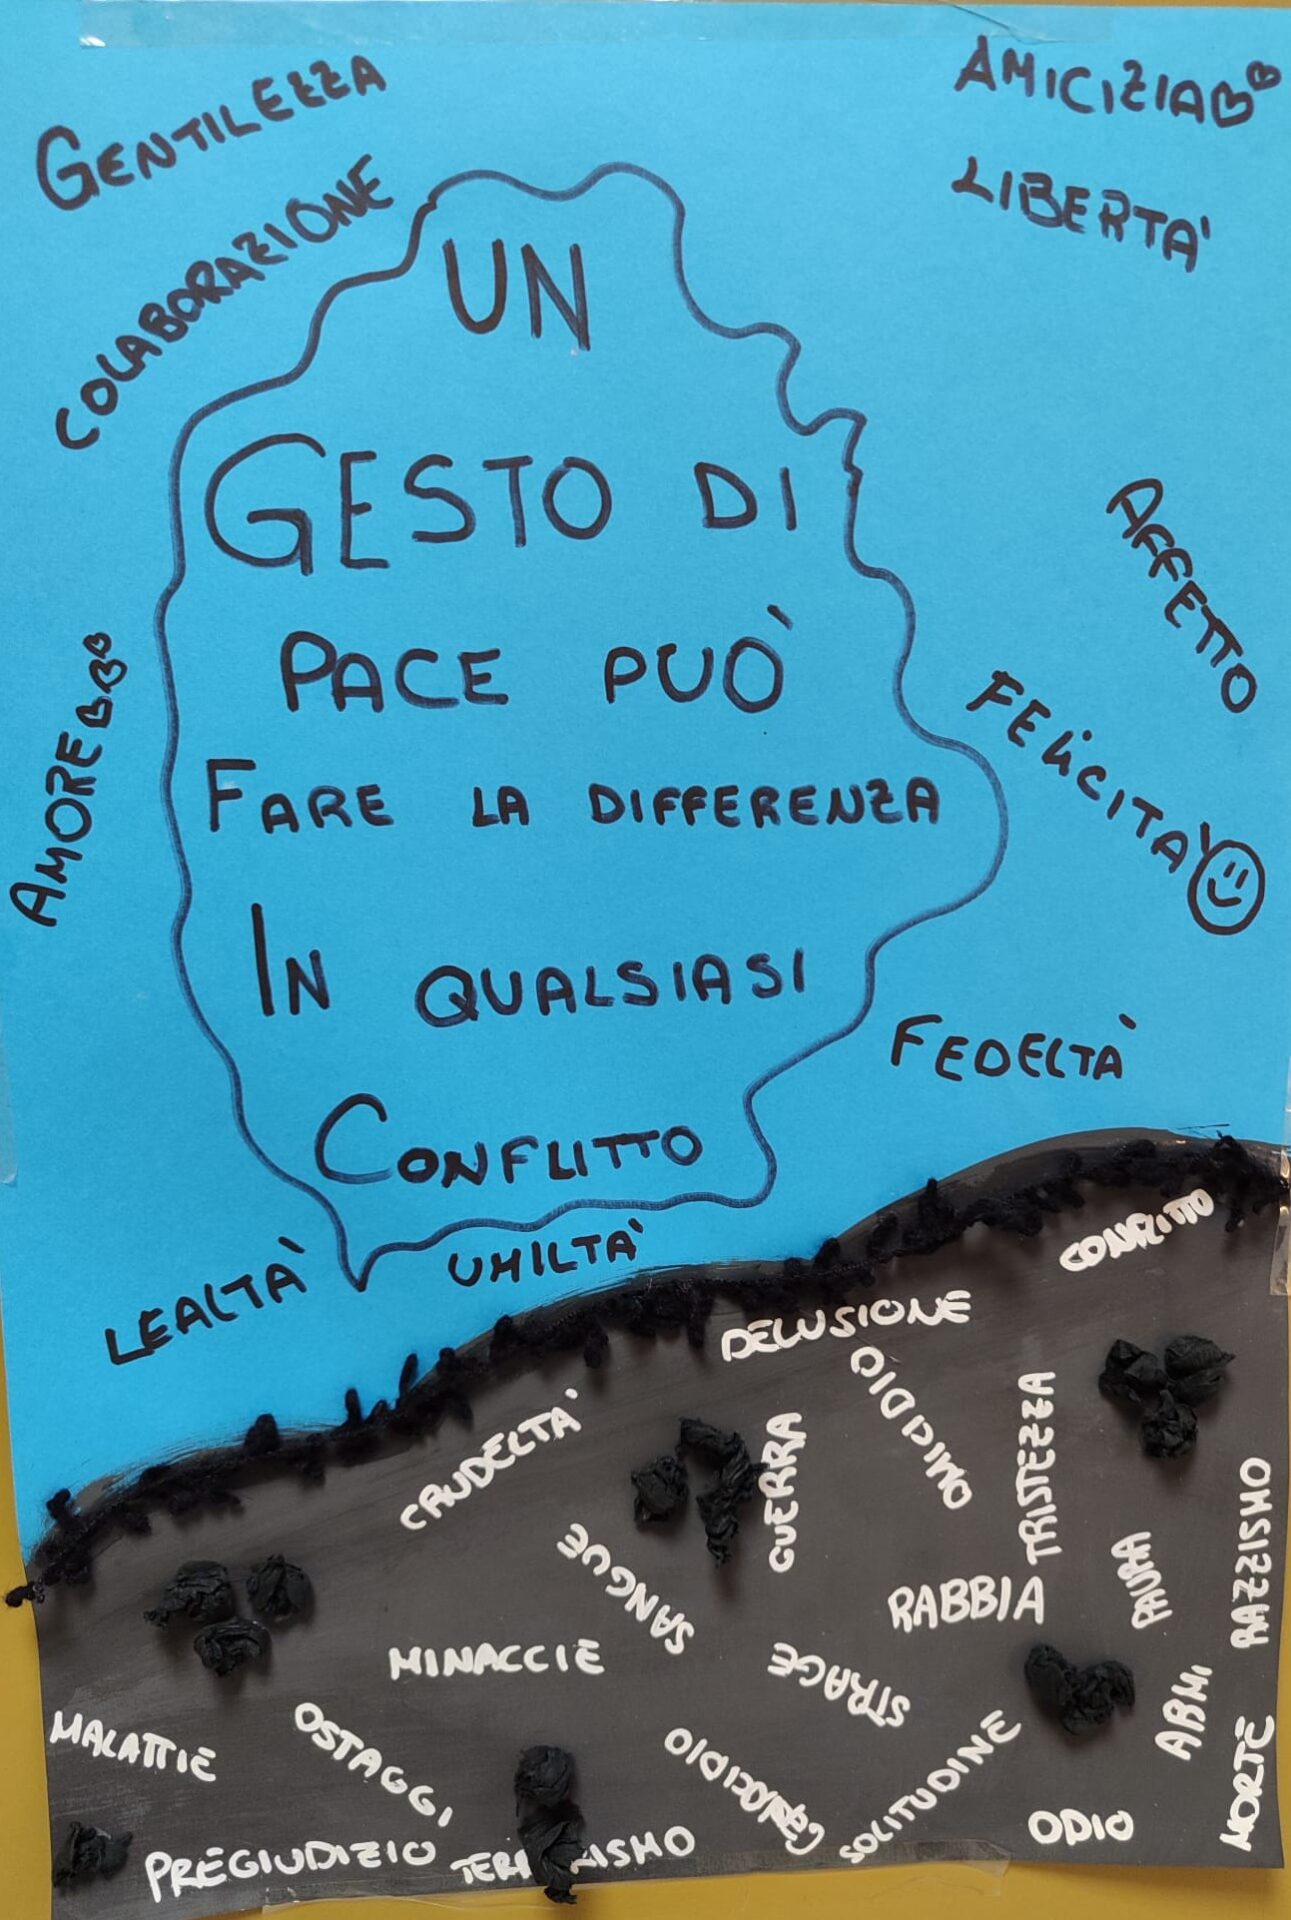 GENTILEZZA
AMICIZIA
COLABORAZIONE
LIBERTA'
UN
GESTO DI
PACE PUÒ
FARE LA DIFFERENZA
IN QUALSIASI
CONFLITTO
AFFETTO
AMORE
FELiCITA'
FEDELTÀ
LEALTÀ
UMILTA'
CONFLITTO
DELUSIONE
OMICIDIO
CRUDELTA'
GUERRA
TRISTEZZA
SANGUE
RABBIA
PAURA
RAZZISMO
MINACCIE
STRAGE
ARMI
MALATTIE
OSTAGGI
SOLITUDINE
MORTE
ODIO
PREGIUDIZIO